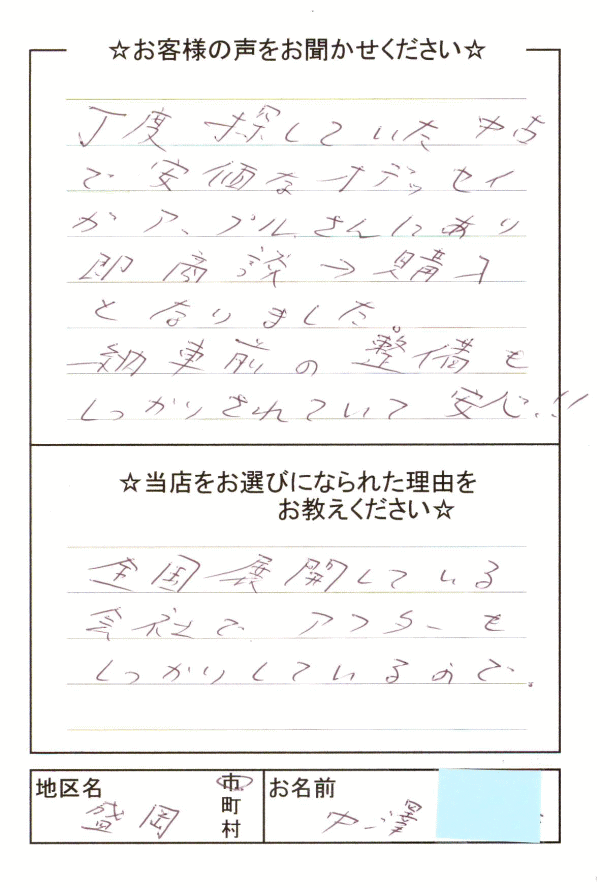 ☆お客様の声をお聞かせください☆
丁度 探していた 中古
で 安価な オデッセイ
が アップルさんにあり
即 商談 → 購入
となりました。
納車前の 整備も
しっかりされていて 安心!!
☆当店をお選びになられた理由を
お教えください☆
全国展開している
会社で アフターも
しっかりしているので.
地区名
盛岡
市
町
村
お名前
中澤